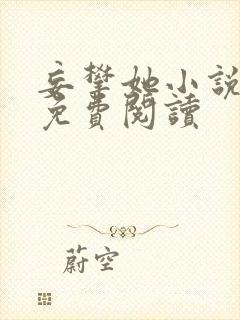 妄攀她小說
免費閱讀
蔚空